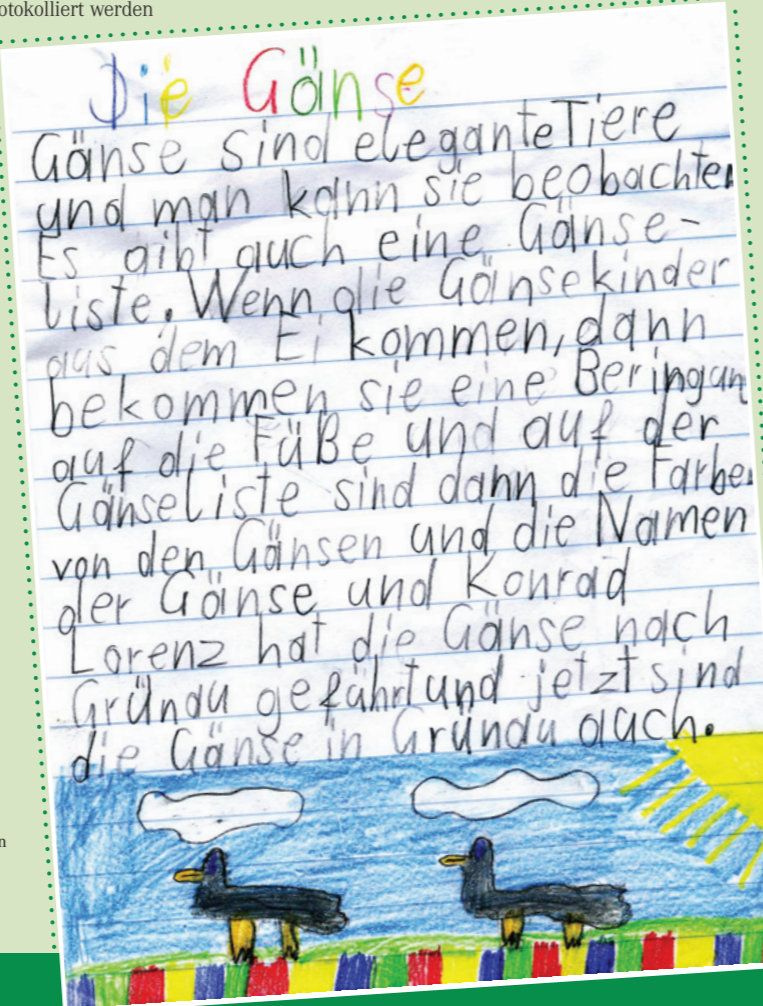 otokolliert werden
Die Gänse
Gänse sind elegante Tiere
und man kann sie beobachten
Es gibt auch eine Gänse-
liste. Wenn die Gänsekinder
aus dem Ei kommen, dann
bekommen sie eine Beringun
auf die Füße und auf der
Gänseliste sind dann die Farbe
von den Gänsen und die Namen
der Gänse und Konrad
Lorenz hat die Gänse nach
Grünau geführt und jetzt sind
die Gänse in Grünau auch.
n